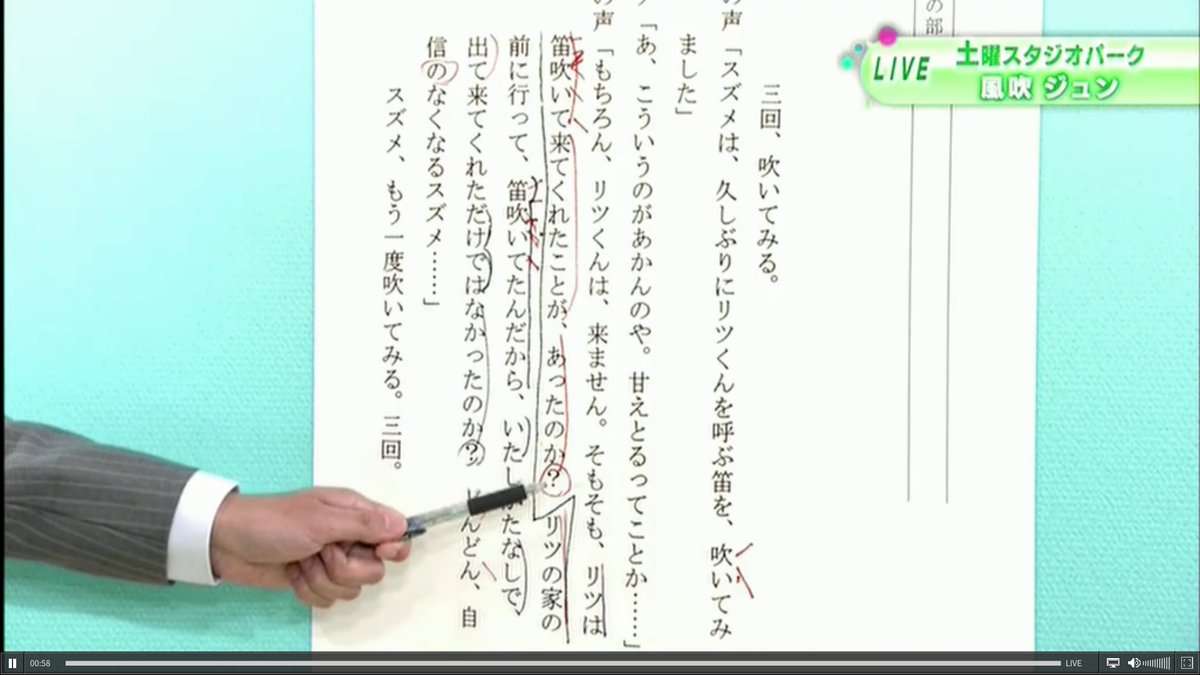 LIVE
土曜スタジオパーク
風吹 ジュン
の部
三回、吹いてみる。
の声「スズメは、久しぶりにリツくんを呼ぶ笛を、吹いてみ
ました」
「あ、こういうのがあかんのや。甘えとるってことか……」
の声「もちろん、リツくんは、来ません。そもそも、リツは
笛吹いて来てくれたことが、あったのか？リツの家の
前に行って、笛吹いてたんだから、いたしかたなしで、
出て来てくれただけではなかったのか？どんどん、自
信のなくなるスズメ……」
スズメ、もう一度吹いてみる。三回。
00:58
LIVE